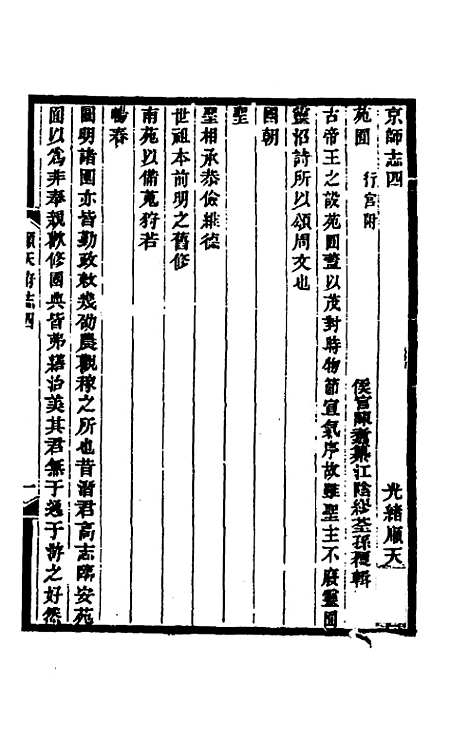 京師志四　　光緒順天
苑囿　行宮附　　侯官陳衍纂江陰繆荃孫覆輯
古帝王之設苑囿蓋以茂對時物節宣氣序故雖聖主不廢靈囿
靈沼詩所以頌周文也
國朝
聖
聖相承恭儉維德
世祖本前明之舊修
南苑以備蒐狩若
暢春
圓明諸園亦皆勤政敕幾劭農觀稼之所也昔潛君高志臨安苑
囿以為非奉親歡修國典皆弗繕治美其君無于逸于游之好然
順天府志四　一